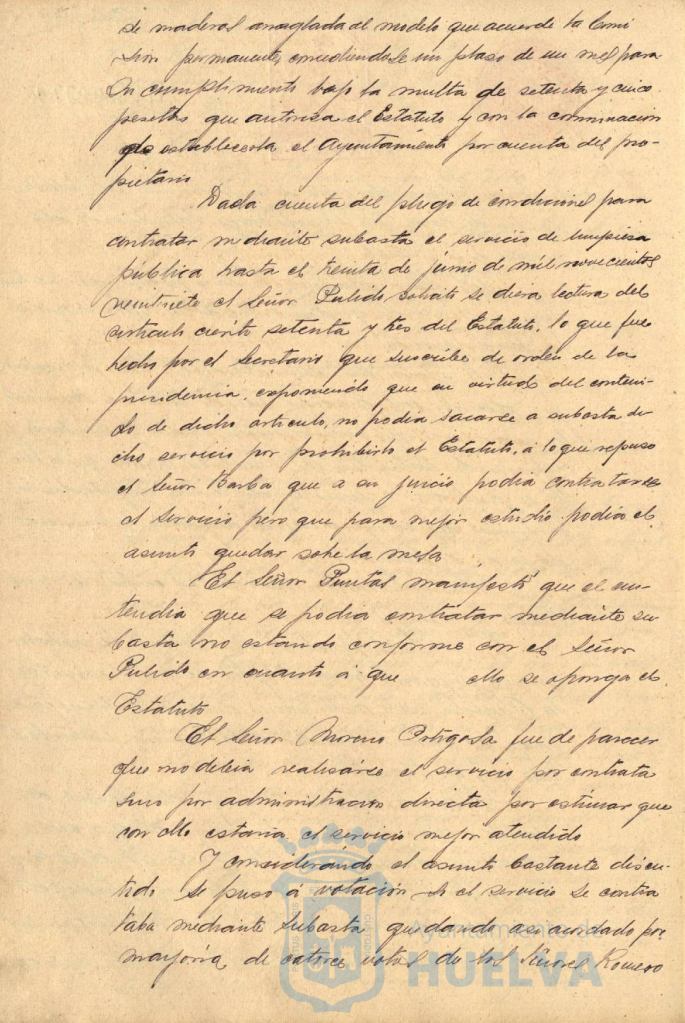 se maderas arreglada al modelo que acuerde la Comi
sion permanente, concediendose un plazo de un mes para
su cumplimiento bajo la multa de setenta y cinco
pesetas que autoriza el Estatuto y con la conminacion
de establecerla el Ayuntamiento por cuenta del pro-
pietario
Dada cuenta del pliego de condiciones para
contratar mediante subasta el servicio de limpieza
pública hasta el treinta de junio de mil novecientos
veintisiete el Señor Pulido solicitó se diera lectura del
articulo ciento setenta y tres del Estatuto, lo que fue
hecho por el Secretario que suscribe de orden de la
presidencia, exponiendo que en virtud del conteni-
do de dicho articulo, no podia sacarse a subasta di-
cho servicio por prohibirlo el Estatuto, á lo que repuso
el Señor Barba que a su juicio podia contratarse
el servicio pero que para mejor estudio podia el
asunto quedar sobre la mesa
El Señor Puntas manifestó que el en-
tendia que se podia contratar mediante su-
basta no estando conforme con el Señor
Pulido en cuanto á que ello se oponga el
Estatuto
El Señor Moreno Ortigosa fue de parecer
que no debia realizarse el servicio por contrata
sino por administracion directa por estimar que
con ello estaria el servicio mejor atendido
Y considerando el asunto bastante discu-
tido se puso á votacion si el servicio se contra
taba mediante subasta quedando asi acordado por
mayoria de catorce votos de los Señores Romero
Ayuntamiento de
HUELVA